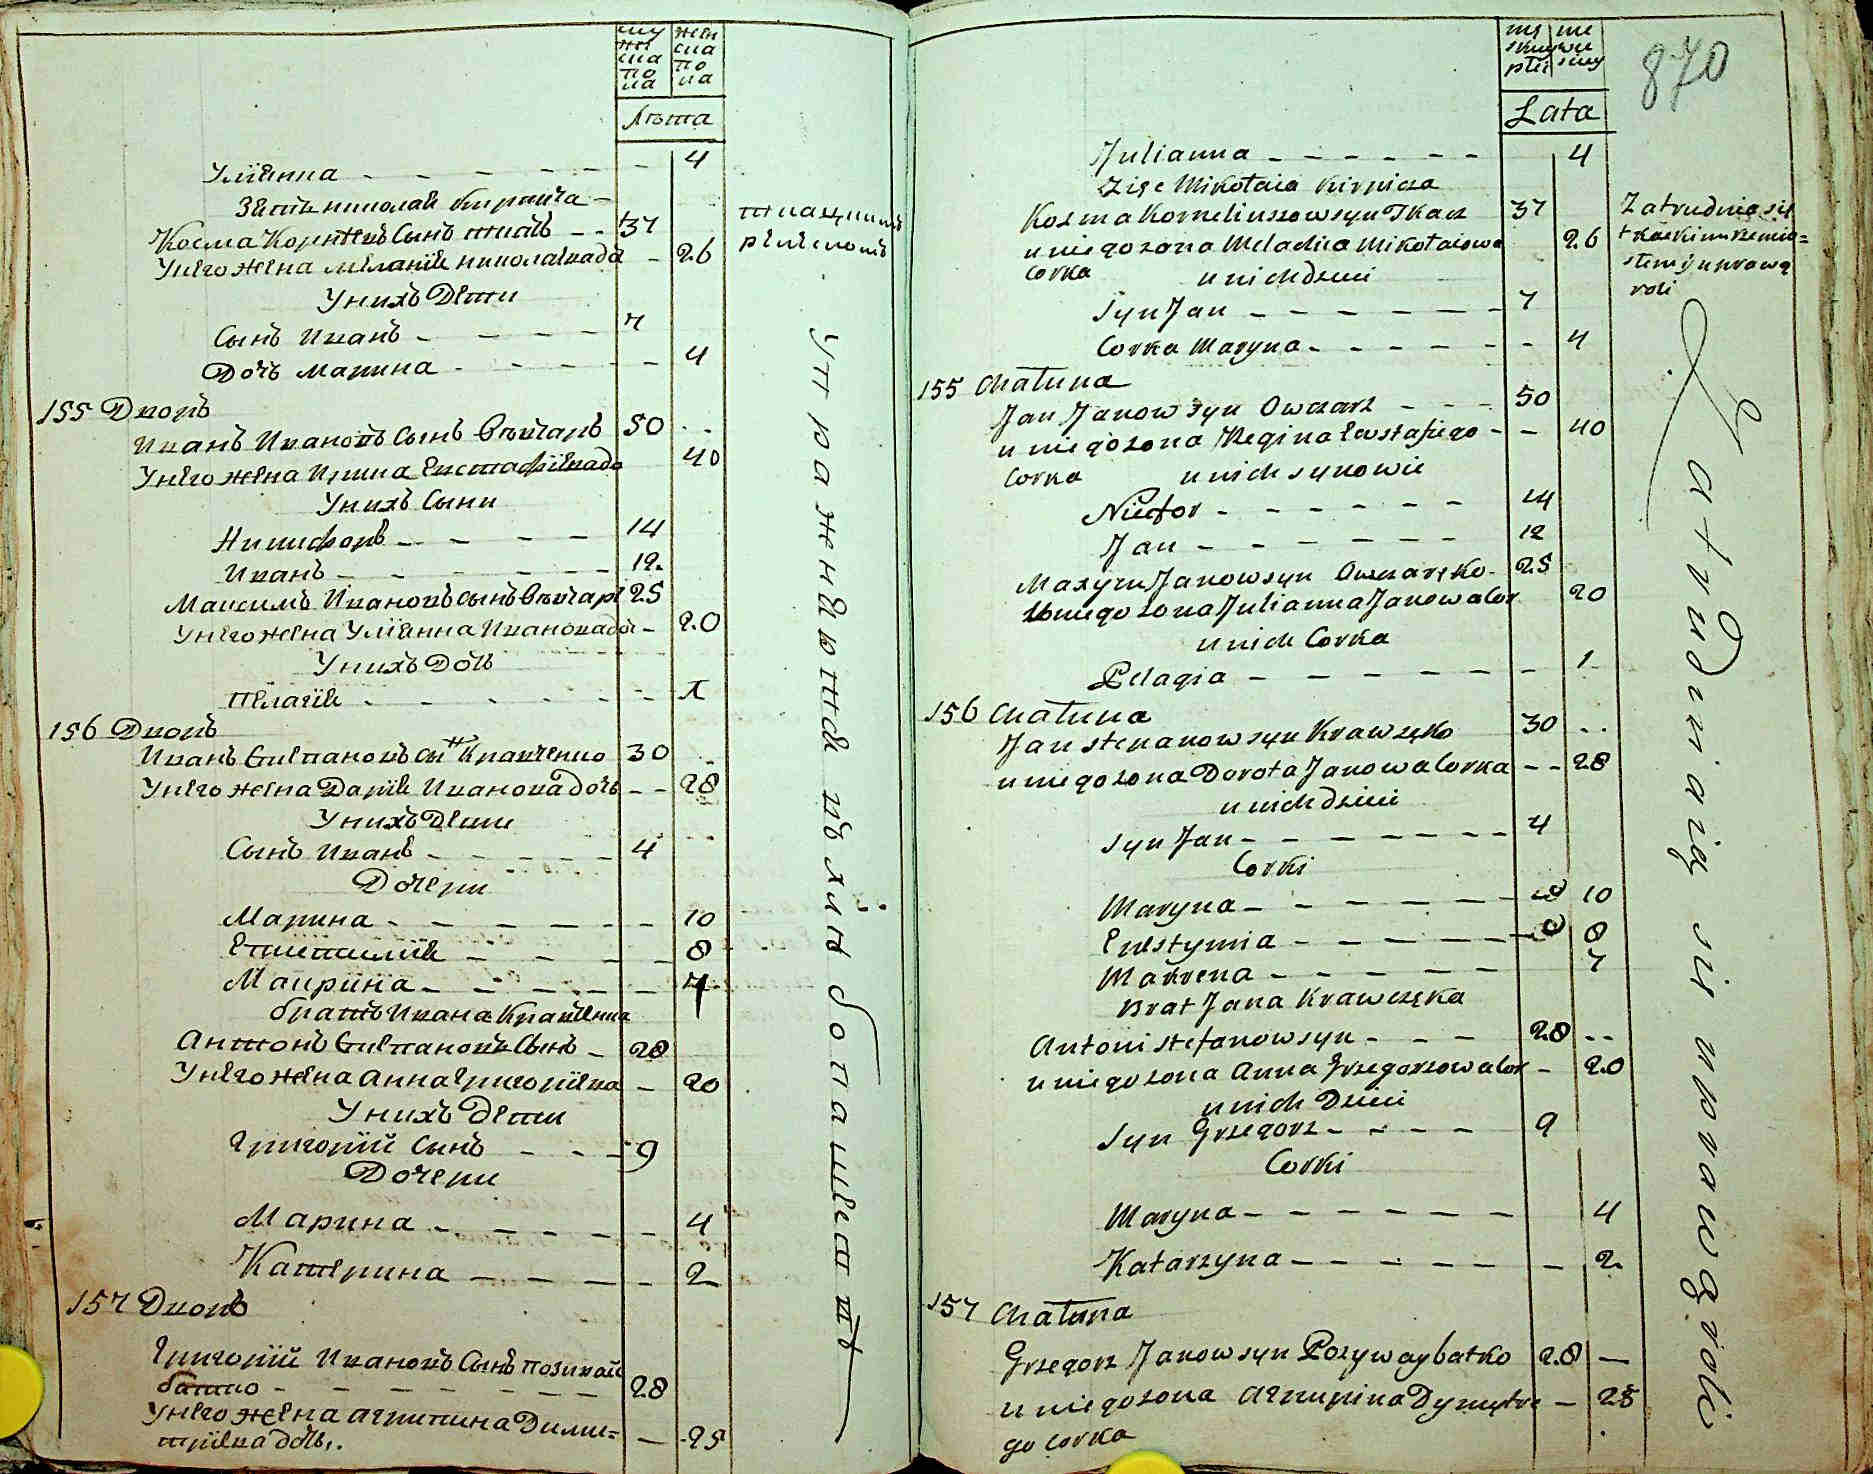 му
жи
ска
по
ла
жен
ска
по
ла
Лѣта
Улiянна - - - - - - 4
Зять николая кирпича -
Косма Корнѣевъ Сынъ ткачь - - 37
ткацкимъ
Унего жена меланiя николаевада - 26
ремесломъ
Унихъ Дети
Сынъ Иванъ - - - - - 7
Дочь марина - - - - - 4
155 Дворъ
Иванъ Ивановъ Сынъ Вѣвчаръ 50
Унего жена Ирина Евстафiевада 40
Унихъ Сыни
Никифоръ - - - - - 14
Иванъ - - - - - - 12.
Максимъ Ивановъ сынъ Вѣвчаръ 25
Унего жена Улiянна Ивановада - 20
Унихъ Дочь
Пелагiя - - - - - - 1
156 Дворъ
Иванъ Степановъ сынъ Кравченко 30
Унего жена Дарiя Иванова дочь - - 28
Унихъ Дети
Сынъ Иванъ - - - - - 4
Дочери
Марина - - - - - - 10
Евтимiя - - - - - 8
Маврина - - - - - - 7
братъ Ивана Кравченка
Антонъ Степановъ Сынъ - 28
Унего жена Анна Григорiева - 20
Унихъ Дети
Григорiй Сынъ - - - 9
Дочери
Марина - - - - - - 4
Катерина - - - - - 2
157 Дворъ
Григорiй Ивановъ Сынъ позивай
батко - - - - - - - 28
Унего жена агрипина Дими=
трiева дочь. - 25
упражняются въ хлѣбопашествѣ
mę
skiey
płci
że
skiey
870
Lata
Julianna - - - - - - 4
Zięć Mikołaia Kirpicza
Kozma Korneliuszow syn Tkacz 37
Zatrudnia się
u niego żona Meladia Mikołaiowa 26
tkackim rzemio=
Corka u nich dzieci
słem y uprawą
roli
Syn Jan - - - - - - - 7
Corka Maryna - - - - - - - 4
155 Chałupa
Jan Janow syn Owczarz - - - 50
u niego żona Regina Ewstafiego - - 40
Corka u nich synowie
Nicefor - - - - - - 14
Jan - - - - - - - 12
Maxym Janow syn Owczarzko - 25
U niego żona Julianna Janowa Cor 20
u nich Corka
Pelagia - - - - - - - 1
156 Chałupa
Jan Stepanow syn Krawczko 30 ..
u niego żona Dorota Janowa Corka - - 28
u nich dzieci
Syn Jan - - - - - - - 4
Corki
Maryna - - - - - - 10
Eustymia - - - - - 8
Makrena - - - - - - 7
Brat Jana Krawczka
Antoni Stefanow syn - - - 28 - -
u niego żona Anna Grzegorzowa Cor - 20
u nich Dzieci
Syn Grzegorz - - - - 9
Corki
Maryna - - - - - - 4
Katarzyna - - - - - - 2
157 Chałupa
Grzegorz Janow syn Pozywaybatko 28 -
u niego żona Agrupina Dymytre - 25
go Corka
Zatrudniaią się uprawą roli